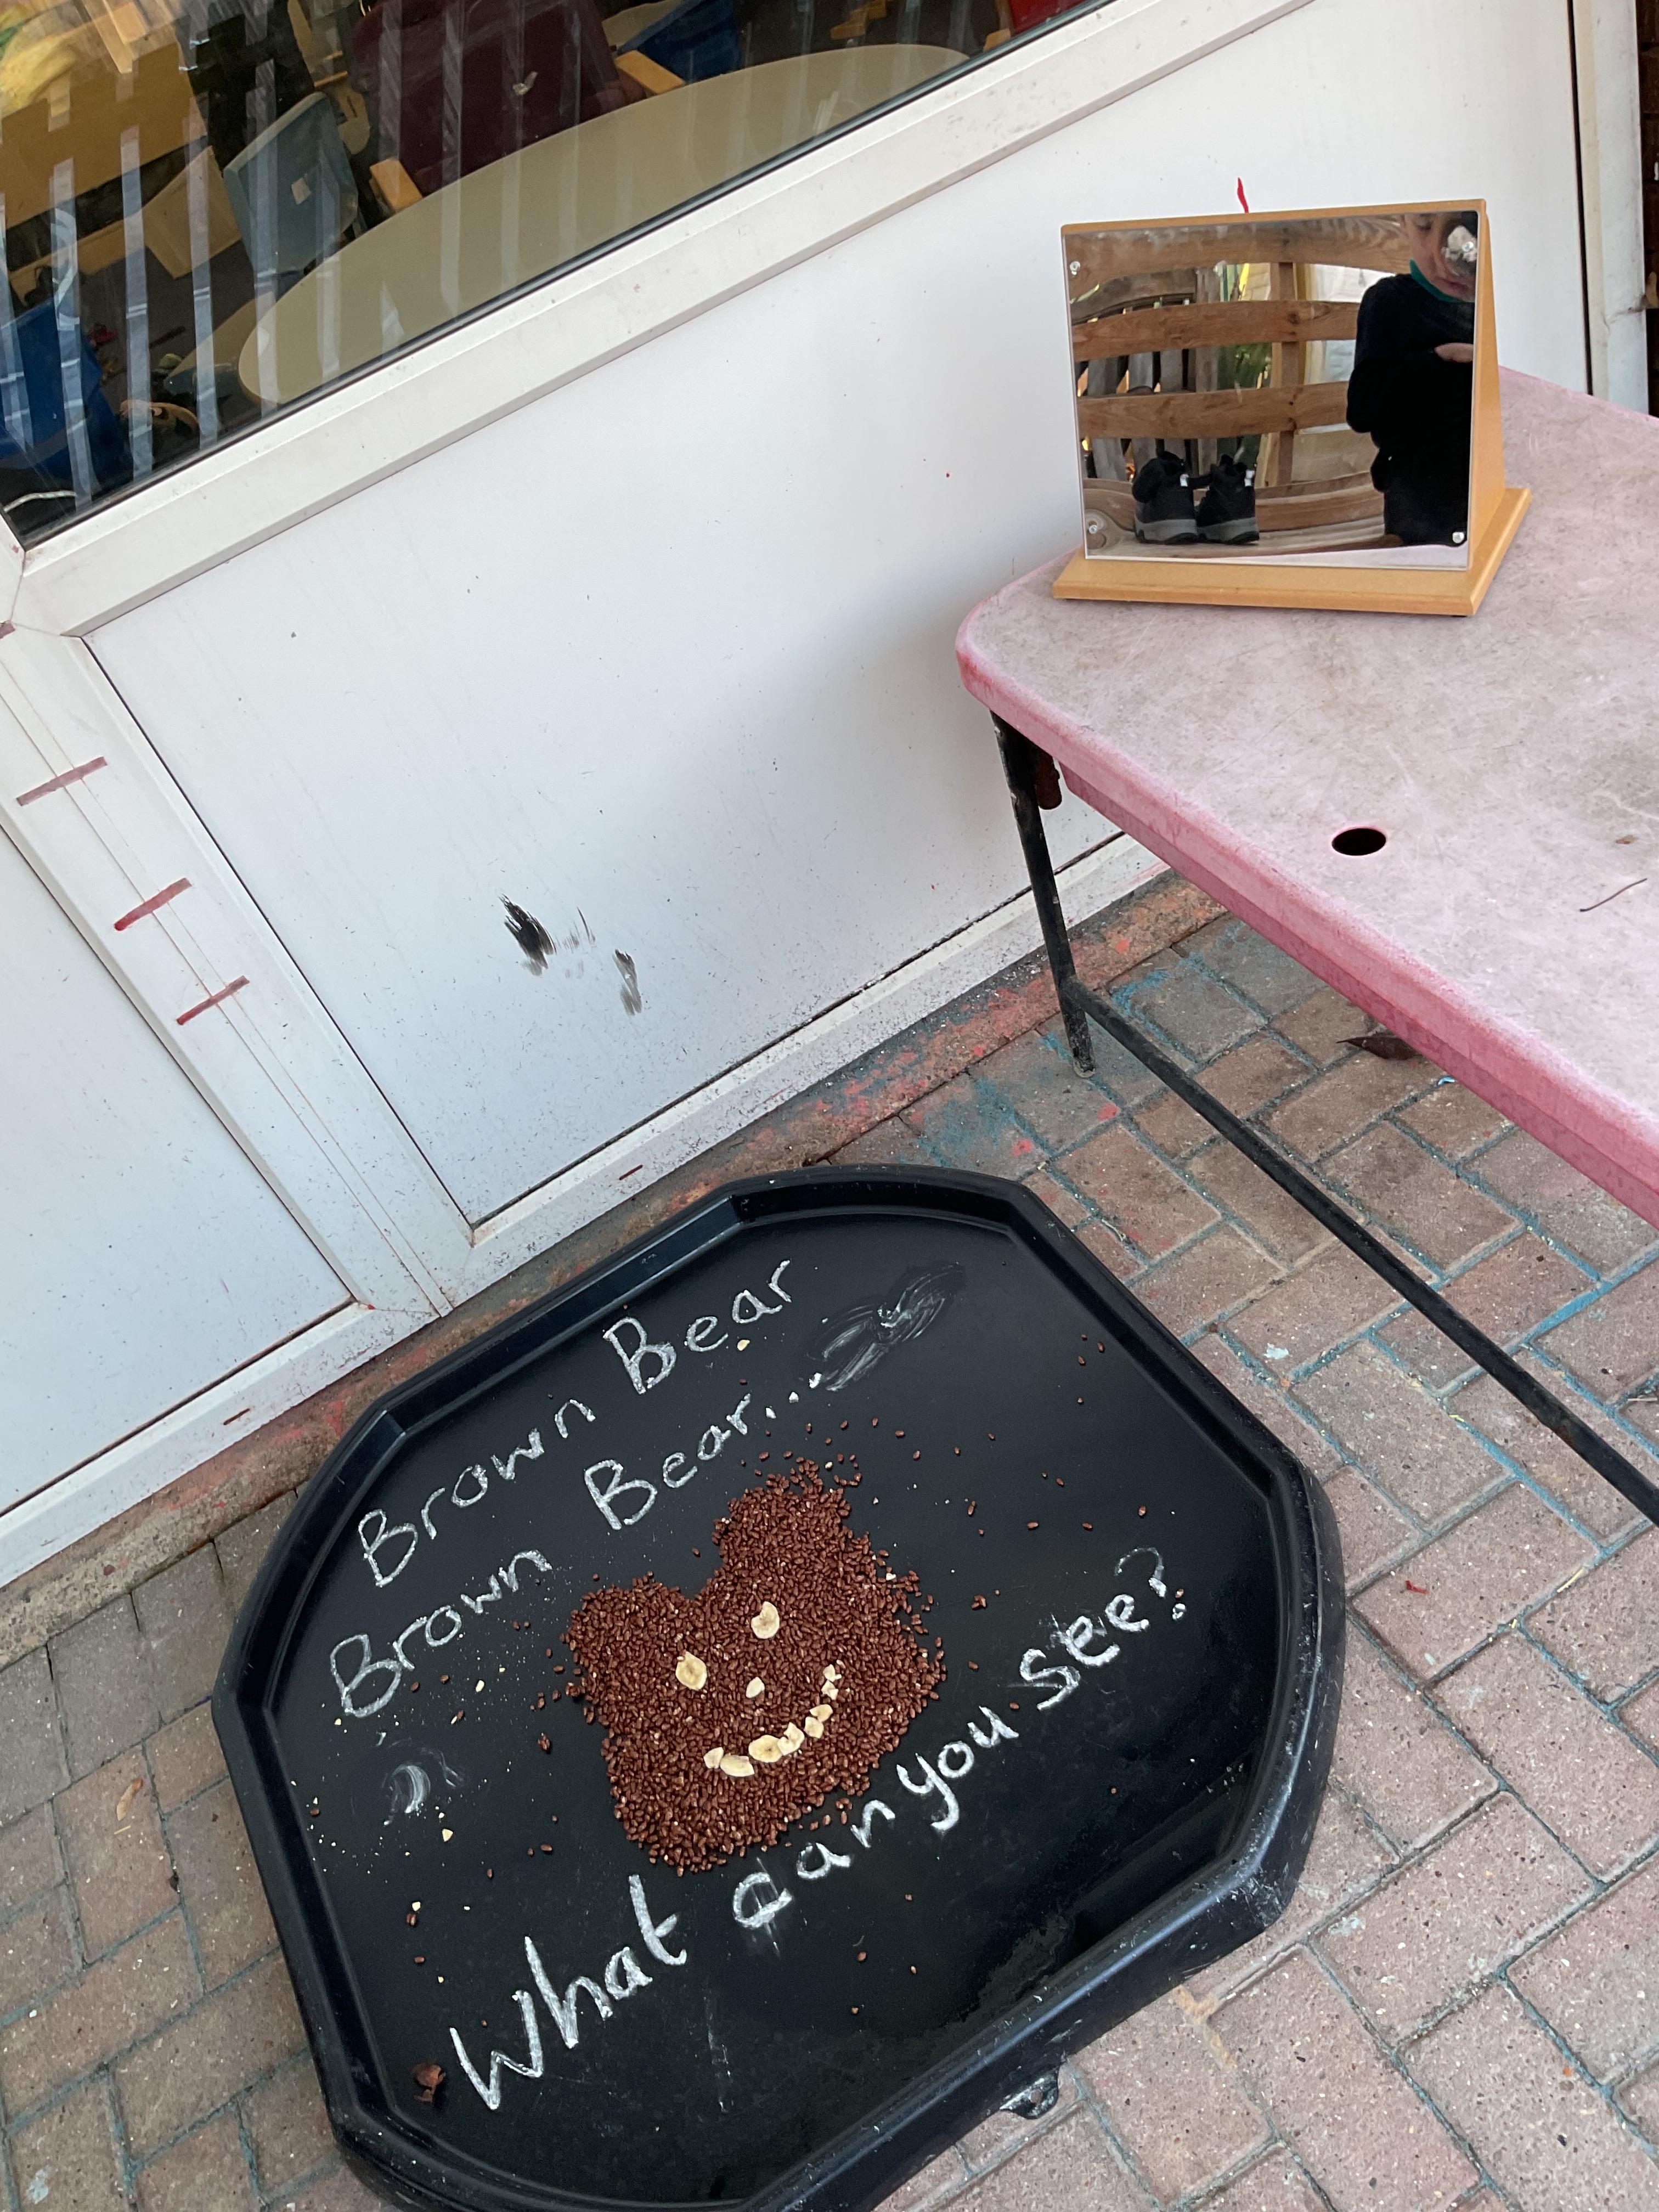 Brown Bear
Brown Bear...
What can you see?